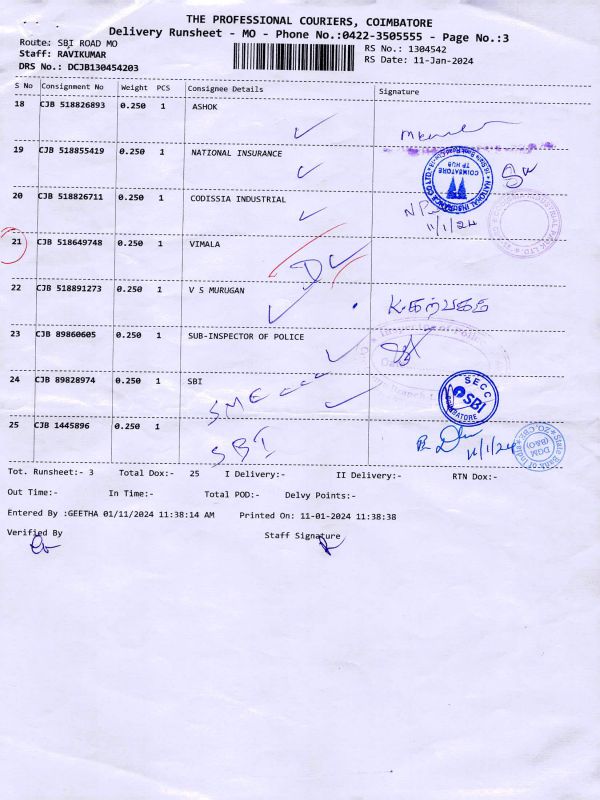 THE PROFESSIONAL COURIERS, COIMBATORE
Delivery Runsheet - MO - Phone No.:0422-3505555 - Page No.:3
Route: SBI ROAD MO
RS No.: 1304542
Staff: RAVIKUMAR
RS Date: 11-Jan-2024
DRS No.: DCJB130454203
S No Consignment No Weight PCS Consignee Details Signature
18 CJB 518826893 0.250 1 ASHOK
19 CJB 518855419 0.250 1 NATIONAL INSURANCE
COIMBATORE
TP HUB
20 CJB 518826711 0.250 1 CODISSIA INDUSTRIAL
11/1/24
21 CJB 518649748 0.250 1 VIMALA
D
22 CJB 518891273 0.250 1 V S MURUGAN
K.கற்பகத
23 CJB 89860605 0.250 1 SUB-INSPECTOR OF POLICE
24 CJB 89828974 0.250 1 SBI
SME
SECC
SBI
COIMBATORE
25 CJB 1445896 0.250 1
SBI
11/1/24
State Bank of India
DGM
(B&O)
ZO, CBE
Tot. Runsheet:- 3 Total Dox:- 25 I Delivery:- II Delivery:- RTN Dox:-
Out Time:- In Time:- Total POD:- Delvy Points:-
Entered By :GEETHA 01/11/2024 11:38:14 AM Printed On: 11-01-2024 11:38:38
Verified By Staff Signature